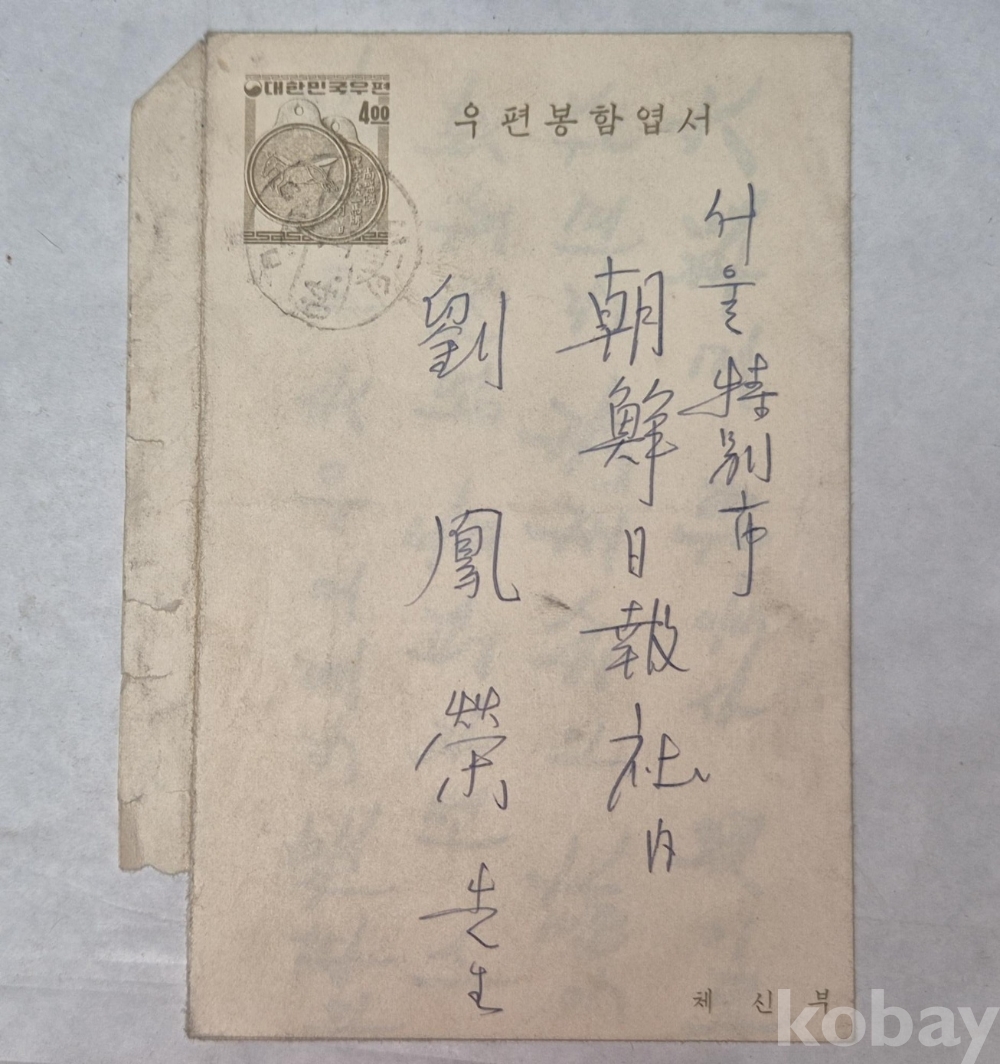 대한민국우편
4.00
우편봉함엽서
서울特別市
朝鮮日報社内
劉鳳榮 先生
체신부
kobay